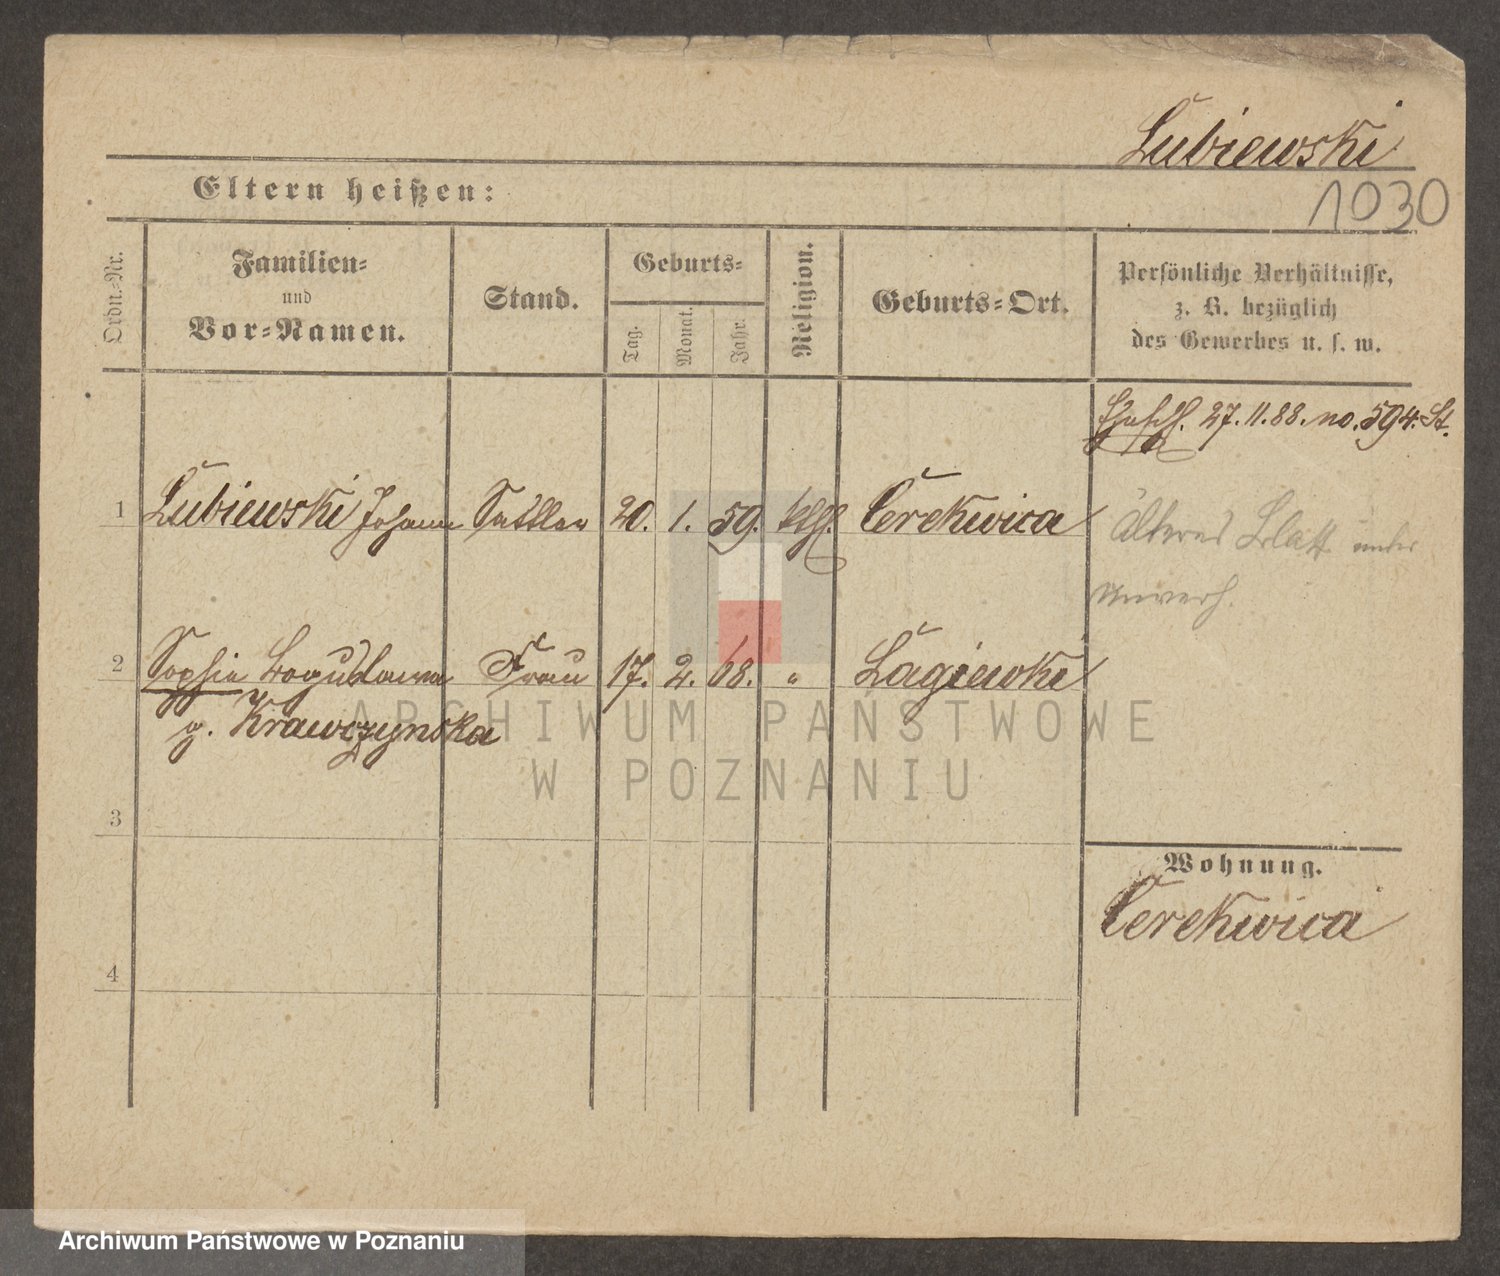 Lubiewski
Eltern heißen:
1030
Ordn.-Nr.
Familien-
und
Vor-Namen.
Stand.
Geburts-
Tag.
Monat.
Jahr.
Religion.
Geburts-Ort.
Persönliche Verhältnisse,
z. B. bezüglich
des Gewerbes u. s. w.
27.11.88. no. 594. St.
1 Lubiewski Johann Sattler 20. 1. 59. kth. Cerekwica
Älteres Blatt unter
Unverh.
2 Sophie Boguslawa Frau 17. 2. 68. " Lagiewki
g. Krawczynska
ARCHIWUM PAŃSTWOWE
W POZNANIU
3
Wohnung.
Cerekwica
4
Archiwum Państwowe w Poznaniu